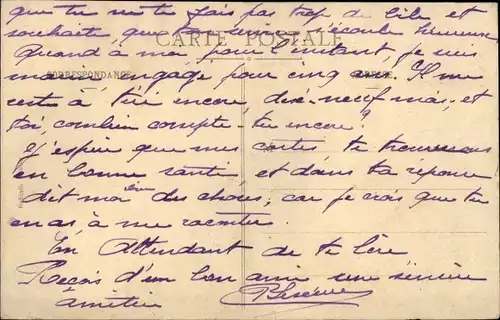 que tu ne te fais pas trop de bile et
souhaite que ton s'écoule heureuse
CARTE POSTALE
Quand à moi, pour l'instant, je suis
CORRESPONDANCE
marin, engagé pour cinq ans. Il me
reste à tiré encore, dix-neuf mois, et
toi, combien compte-tu encore?
J'espère que mes cartes te trouverons
en bonne santé, et dans ta réponse
dit moi bien des choses, car je crois que tu
en as à me raconter.
En Attendant de te lire
Reçois d'un bon ami une sincère
amitié